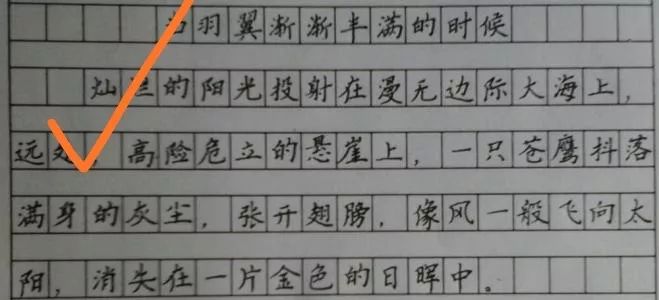 羽翼渐渐丰满的时候
灿的阳光投射在漫无边际大海上，
远，高险危立的悬崖上，一只苍鹰抖落
满身的灰尘，张开翅膀，像风一般飞向太
阳，消失在一片金色的日晖中。